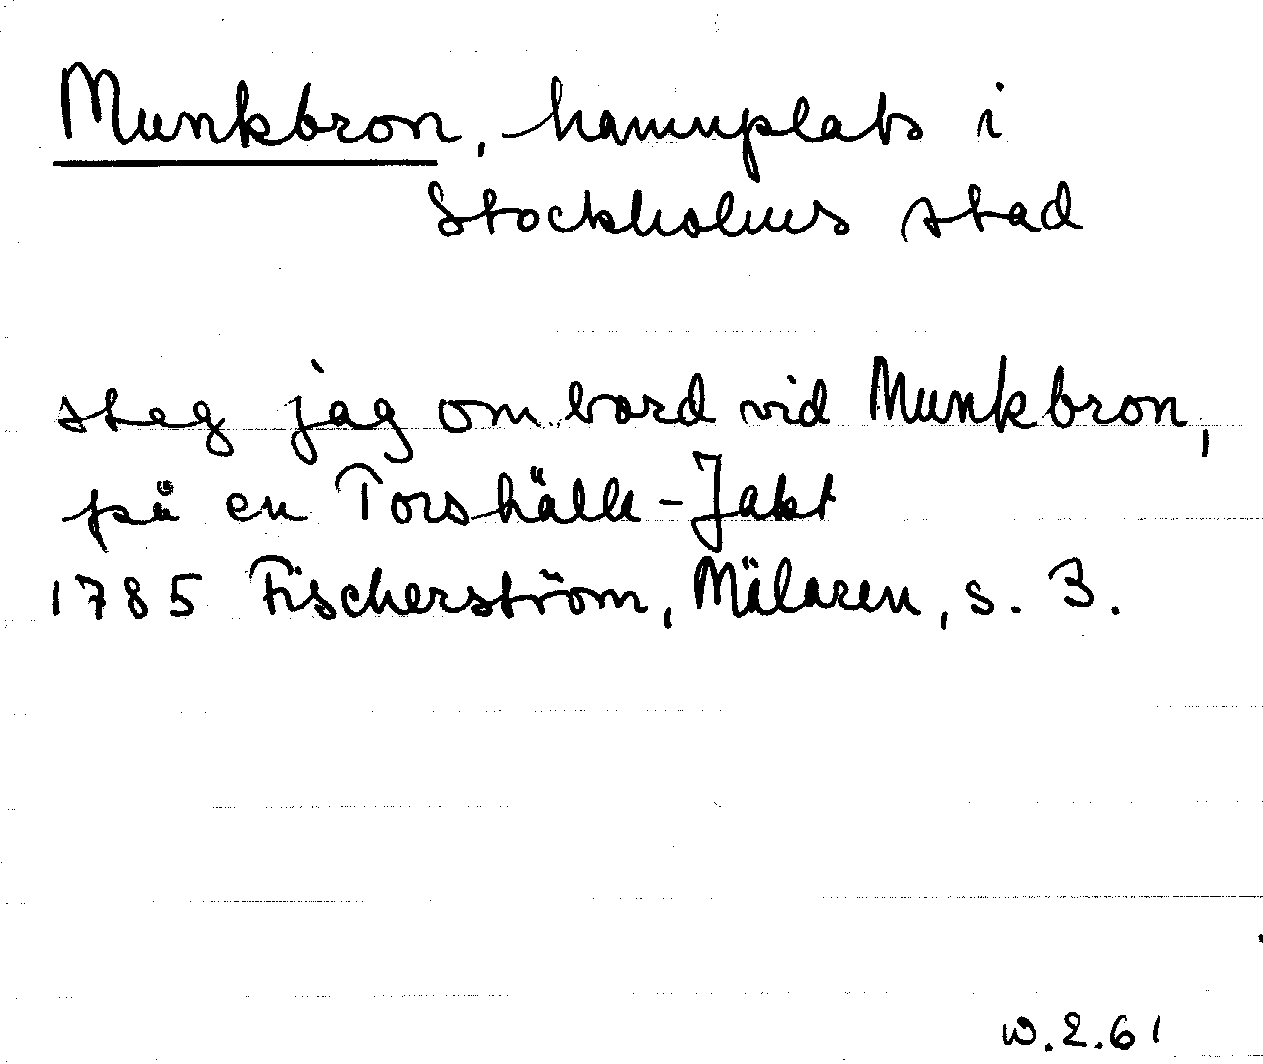 Munkbron, hamnplats i
Stockholms stad
steg jag om bord vid Munkbron,
på en Torshälle-Jakt
1785 Fischerström, Mälaren, s. 3.
w.2.61